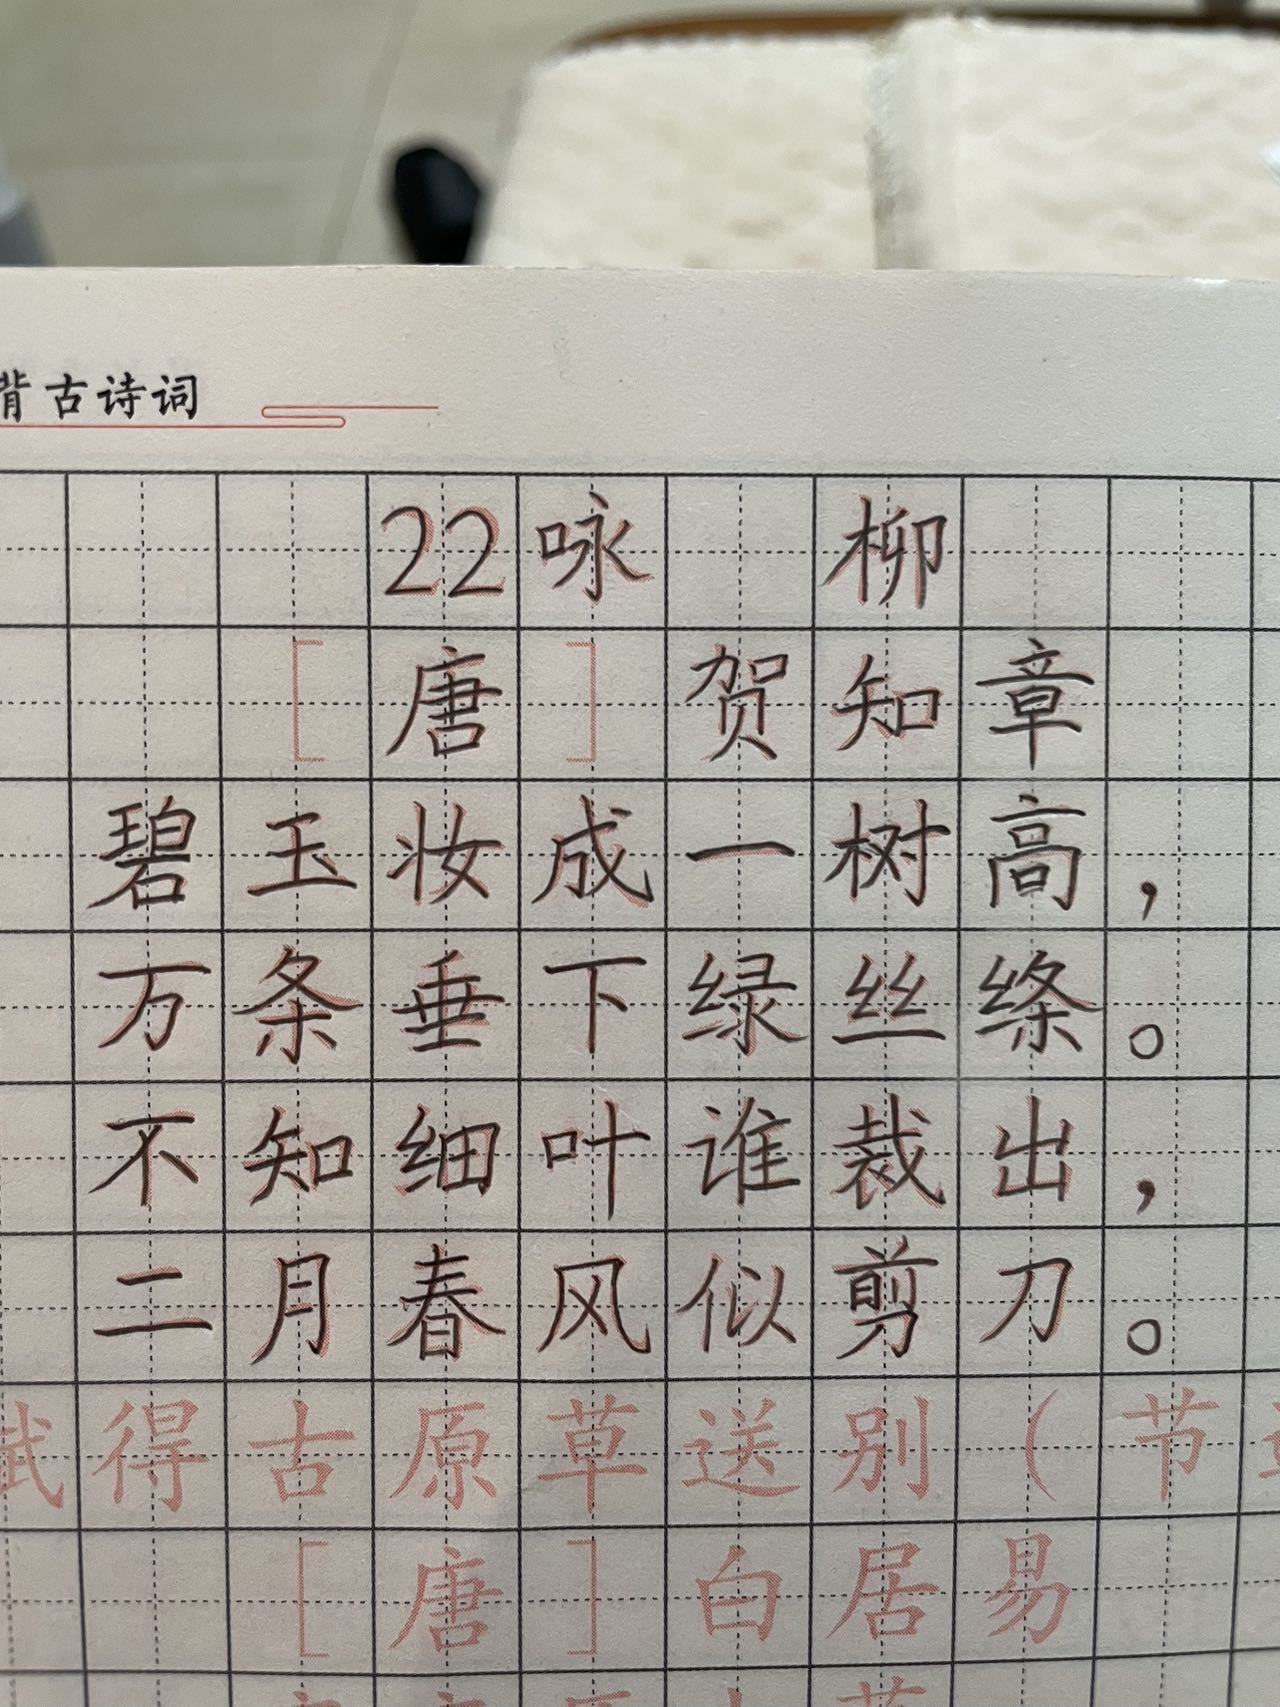 背古诗词
22咏 柳
[唐]贺知章
碧玉妆成一树高，
万条垂下绿丝绦。
不知细叶谁裁出，
二月春风似剪刀。
赋得古原草送别（节
[唐]白居易